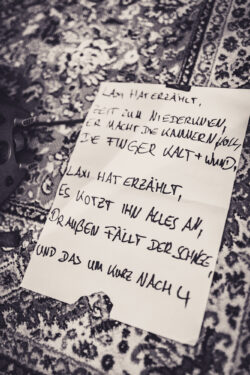 LAXI HAT ERZÄHLT,
ZEIT ZUM NIEDERKNIEN,
ER MACHT DIE KAMMERN VOLL,
DIE FINGER KALT + WUND,
LAXI HAT ERZÄHLT,
ES KOTZT IHN ALLES AN,
DRAUßEN FÄLLT DER SCHNEE,
UND DAS UM KURZ NACH 4